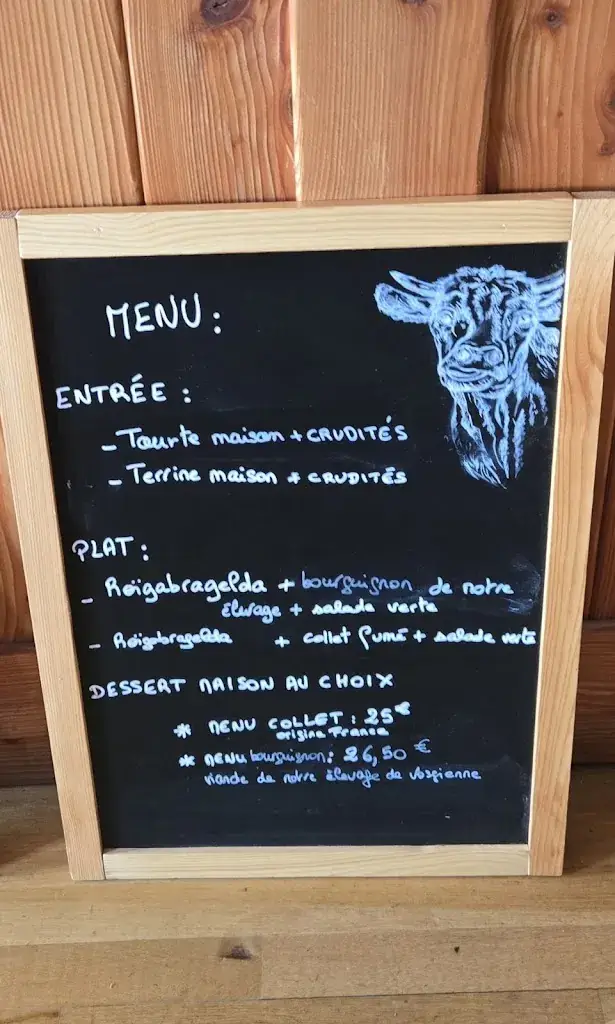 MENU :
ENTRÉE :
- Tourte maison + CRUDITÉS
- Terrine maison + CRUDITÉS
PLAT :
- Roïgabragelda + bourguignon de notre
élevage + salade verte
- Roïgabragelda + collet fumé + salade verte
DESSERT MAISON AU CHOIX
* MENU COLLET : 25€
origine France
* MENU bourguignon : 26,50 €
viande de notre élevage de vosgienne